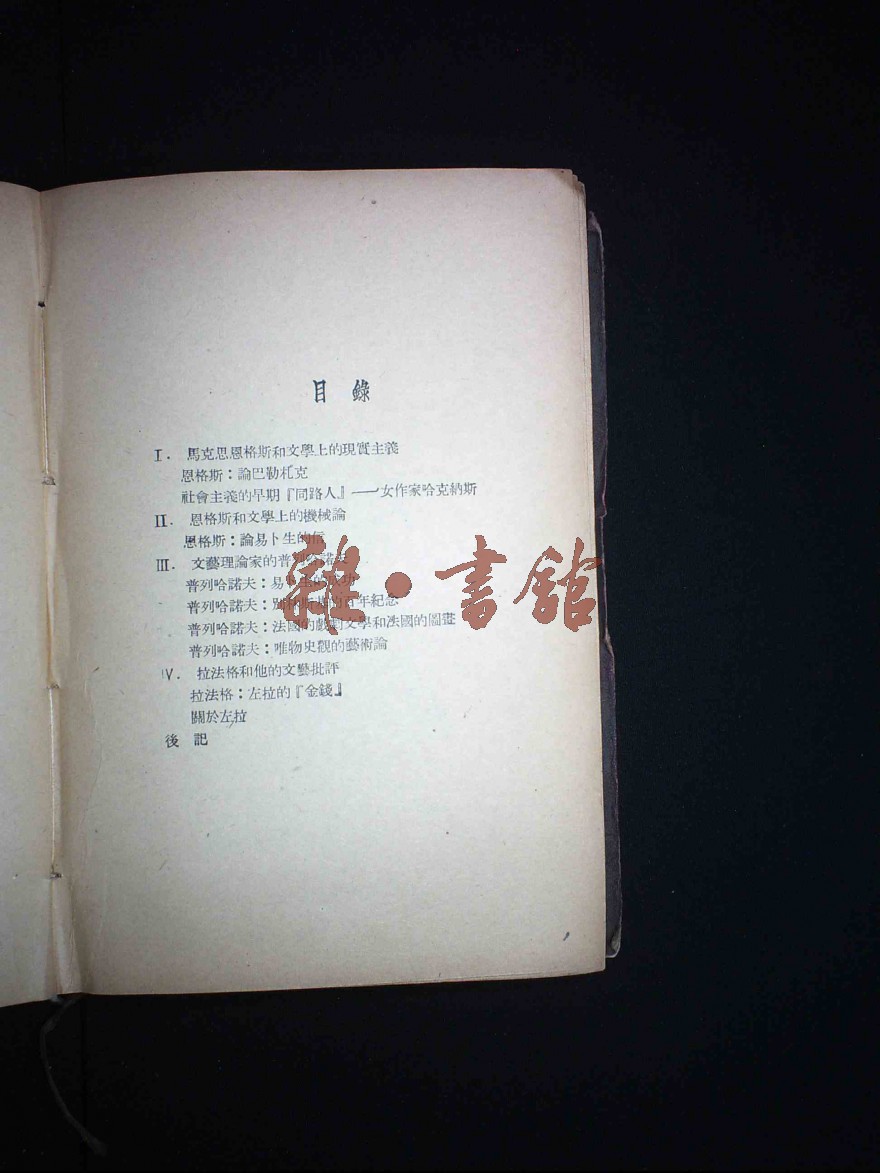 目錄
I. 馬克思恩格斯和文學上的現實主義
恩格斯：論巴勒札克
社會主義的早期『同路人』——女作家哈克納斯
II. 恩格斯和文學上的機械論
恩格斯：論易卜生的信
III. 文藝理論家的普列哈諾夫
普列哈諾夫：易卜生的成功
普列哈諾夫：別林斯基的百年紀念
普列哈諾夫：法國的戲劇文學和法國的圖畫
普列哈諾夫：唯物史觀的藝術論
IV. 拉法格和他的文藝批評
拉法格：左拉的『金錢』
關於左拉
後記
雜·書館